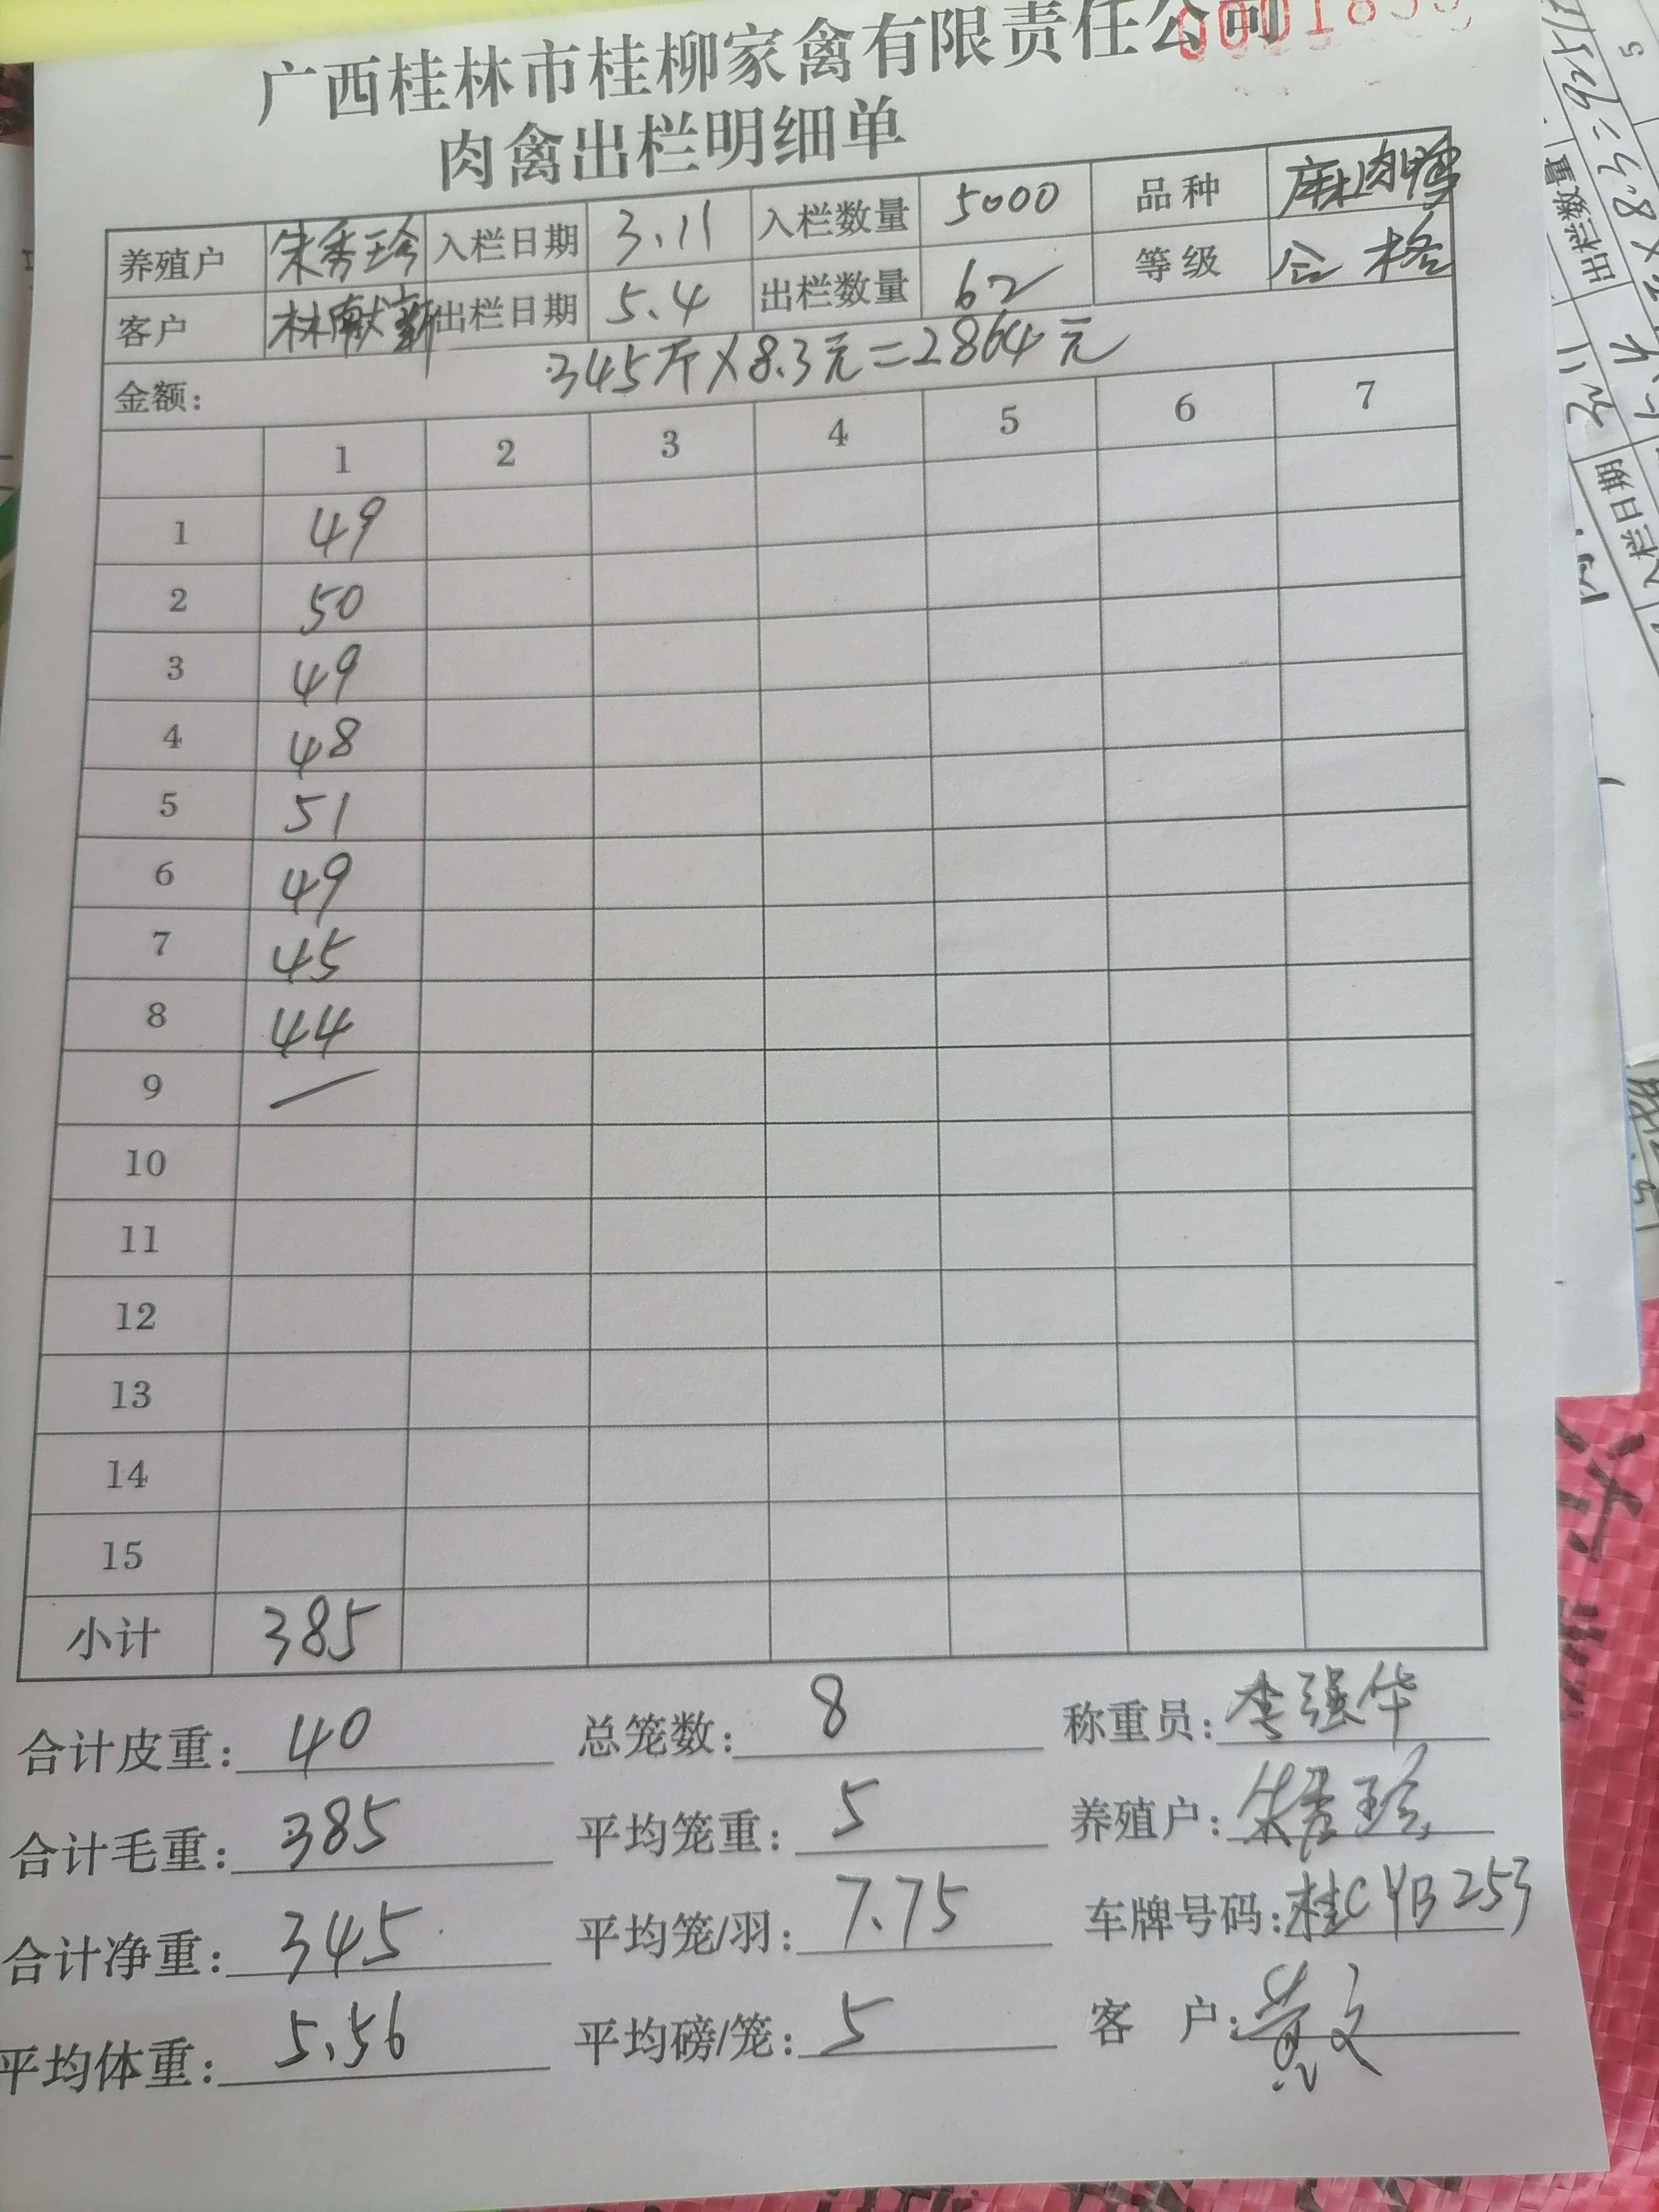 广西桂林市桂柳家禽有限责任公司
肉禽出栏明细单
养殖户 朱秀珍 入栏日期 3.11 入栏数量 5000 品种 麻肉鸭
客户 林献新 出栏日期 5.4 出栏数量 62 等级 合格
金额: 345斤×8.3元=2864元
1 2 3 4 5 6 7
1 49
2 50
3 49
4 48
5 51
6 49
7 45
8 44
9 —
10
11
12
13
14
15
小计 385
合计皮重: 40 总笼数: 8 称重员: 李强华
合计毛重: 385 平均笼重: 5 养殖户: 朱秀珍
合计净重: 345 平均笼/羽: 7.75 车牌号码: 桂CYB253
平均体重: 5.56 平均磅/笼: 5 客 户: 黄文
出栏数量
入栏日期